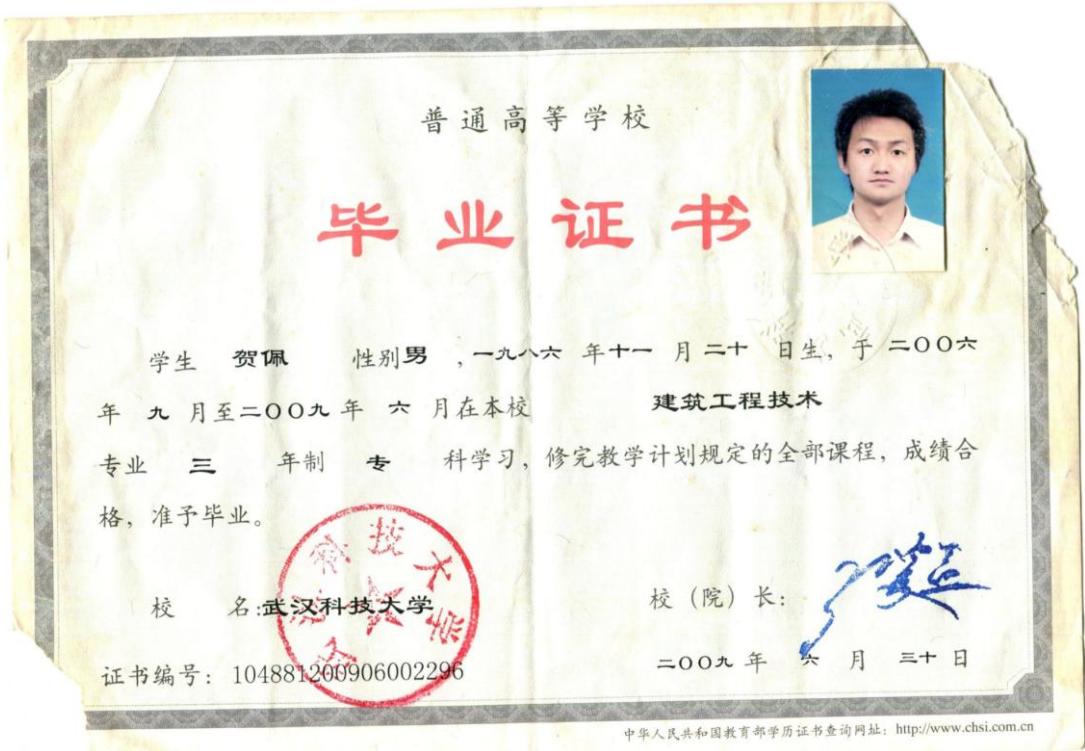 普通高等学校
毕业证书
学生 贺佩 性别男 ，一九八六 年十一 月二十 日生，于 二〇〇六
年 九 月至二〇〇九 年 六 月在本校 建筑工程技术
专业 三 年制 专 科学习，修完教学计划规定的全部课程，成绩合
格，准予毕业。
武汉科技大学
校 名:武汉科技大学
校（院）长：
证书编号：104881200906002296
二〇〇九 年 六 月 三十 日
中华人民共和国教育部学历证书查询网址：http://www.chsi.com.cn